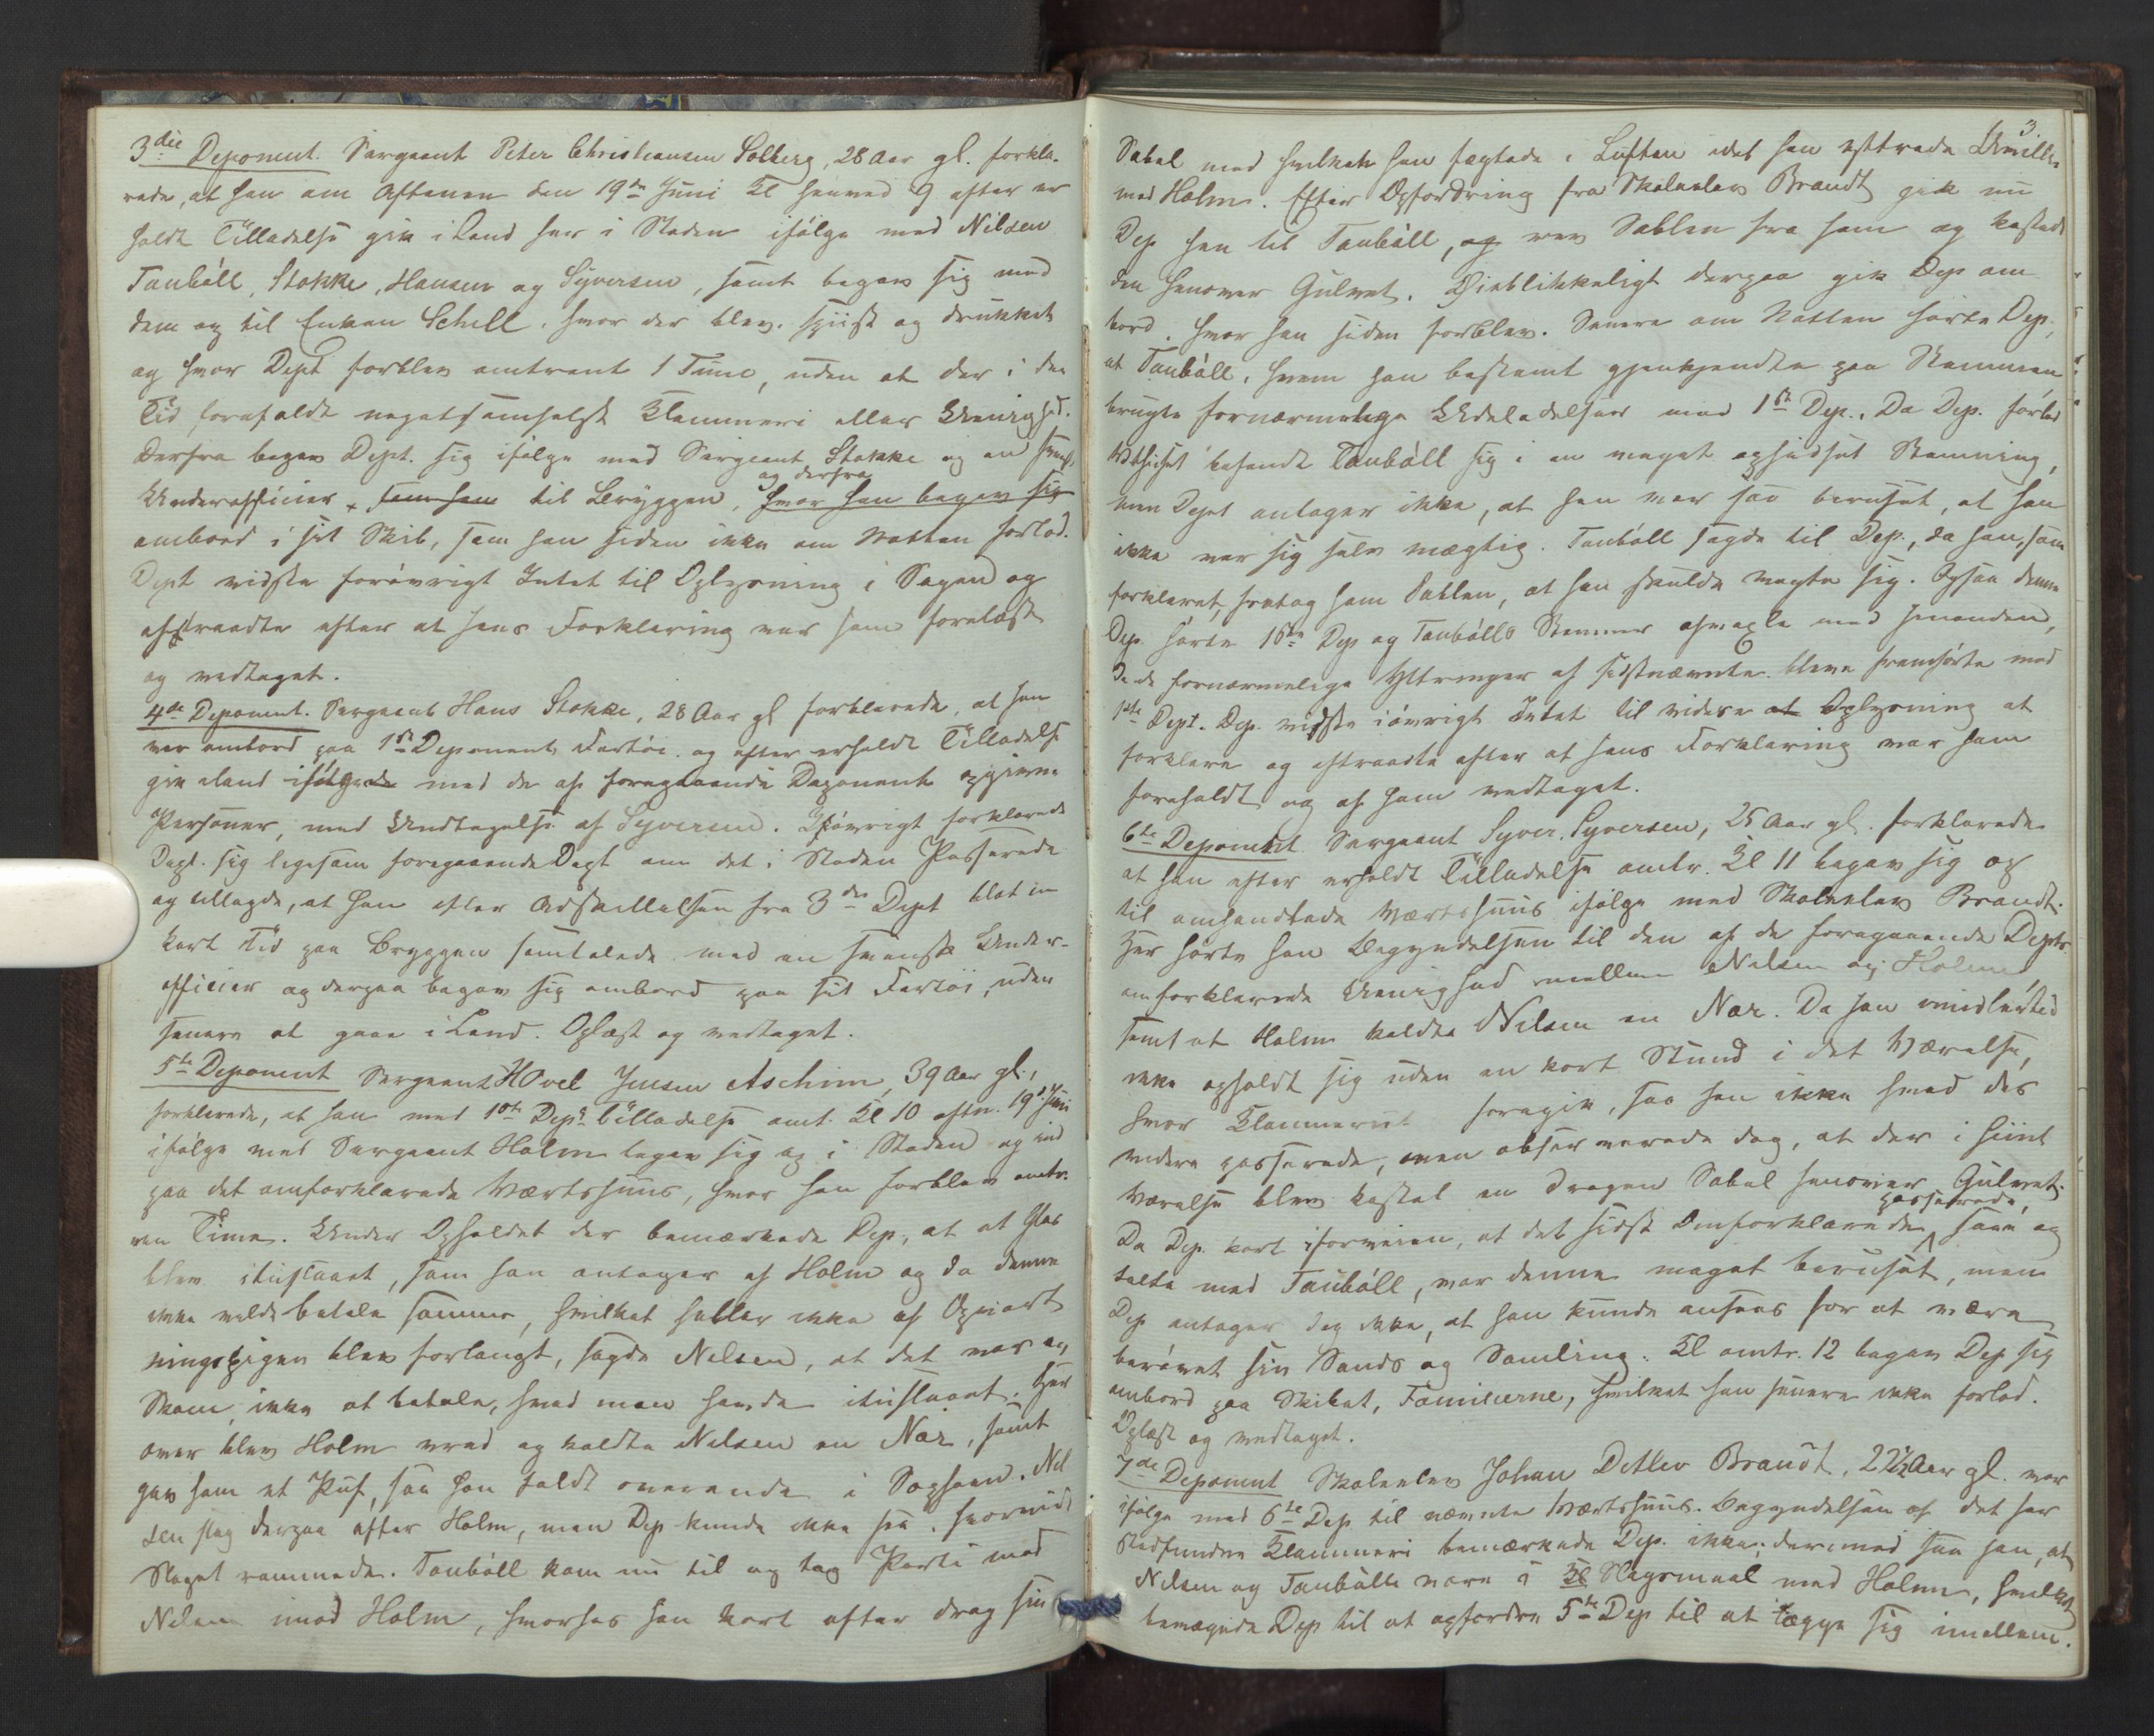 3die Deponent. Sergeant Peter Christiansen Solberg, 28 Aar gl. forkla-
rede, at han om Aftenen den 19de Juni Kl henved 9 efter er
holdt Tilladelse gik i Land her i Staden ifølge med Nilsen
Taubøll, Stokke, Hansen og Syversen, samt begav sig med
dem op til Enken Schell, hvor der blev spiist og drukket
og hvor Dept forblev omtrent 1 Time, uden at der i den
Tid forefaldt nogetsomhelst Klammeri eller Uenighed.
Derfra begav Dept. sig ifølge med Sergeant Stokke og en svensk
Underofficier, som han til Bryggen, og derfra hvor han begav sig
ombord i sit Skib, som han siden ikke om Natten forlod.
Dept vidste forøvrigt Intet til Oplysning i Sagen og
aftraadte efter at hans Forklaring var ham forelæst
og vedtaget.
4de Deponent. Sergeant Hans Stokke, 28 Aar gl forklarede, at han
var ombord paa 1ste Deponents Fartøi og efter erholdt Tilladelse
gik iland ifølge med de af foregaaende Deponent opgivne
Personer, med Undtagelse af Syversen. Iøvrigt forklarede
Dept. sig ligesom foregaaende Dept om det i Staden Passerede
og tillagde, at han efter Adskillelsen fra 3die Dept blot en
kort Tid paa Bryggen samtalede med en svensk Under-
officier og derpaa begav sig ombord paa sit Fartøi, uden
senere at gaae i Land. Oplæst og vedtaget.
5te Deponent Sergeant Hovel Jensen Aschim, 39 Aar gl.,
forklarede, at han med 1ste Dep's Tilladelse omt. Kl 10 aftn. 19de Juni
ifølge med Sergeant Holm begav sig op i Staden og ind
paa det omforklarede Værtshuus, hvor han forblev omtr.
een Time. Under Opholdet der bemærkede Dep., at et Glas
blev ituslaaet, som han antager af Holm og da denne
ikke vilde betale samme, hvilket heller ikke af Opvart
ningspigen blev forlangt, sagde Nilsen, at det var en
Skam, ikke at betale, hvad man havde ituslaaet. Her
over blev Holm vred og kaldte Nilsen en Nar, samt
gav ham et Puf, saa han faldt overende i Sophaen. Nil
sen slog derpaa efter Holm, men Dep kunde ikke see, hvorvidt
Slaget rammede. Taubøll kom nu til og tog Parti med
Nilsen imod Holm, hvorhos han kort efter drog sin
3
Sabel med hvilken han fægtede i Luften idet han yttrede Uvillie
mod Holm. Efter Opfordring fra Skoleelev Brandt gik nu
Dep hen til Taubøll, og rev Sablen fra ham og kastede
den henover Gulvet. Øieblikkeligt derpaa gik Dep om
bord, hvor han siden forblev. Senere om Natten hørte Dep.,
at Taubøll, hvem han bestemt gjenkjendte paa Stemmen
brugte fornærmelige Udeladelser mod 1ste Dep. Da Dep. forlod
Værtshuset befandt Taubøll sig i en meget ophidset Stemning,
men Dept antager ikke, at han var saa beruset, at han
ikke var sig selv mægtig. Taubøll sagde til Dep., da han, som
forklaret, fratog ham Sablen, at han skulde vogte sig. Ogsaa denne
Dep. hørte 1ste Dep og Taubølls Stemmer afvexle med hinanden,
da de fornærmelige Yttringer af sidstnævnte bleve fremførte mod
1ste Dept. Dep. vidste iøvrigt Intet til videre at Oplysning at
forklare og aftraadte efter at hans Forklaring var ham
foreholdt og af ham vedtaget.
6te Deponent Sergeant Syver Syversen, 25 Aar gl. forklarede
at han efter erholdt Tilladelse omtr. Kl 11 begav sig op
til omhandlede Værtshuus ifølge med Skoleelev Brandt.
Her hørte han Begyndelsen til den af de foregaaende Depts
omforklarede Uenighed mellem Nilsen og Holm,
samt at Holm kaldte Nilsen en Nar. Da han imidlertid
ikke opholdt sig uden en kort Stund i det Værelse,
hvor Klammeriet foregik, saa han ikke hvad der
videre passerede, men observerede dog, at der i hiint
Værelse blev kastet en dragen Sabel henover Gulvet.
Da Dep. kort iforveien, at det sidst Omforklarede passerede, saae og
talte med Taubøll, var denne meget beruset, men
Dep antager dog ikke, at han kunde ansees for at være
berøvet sin Sands og Samling. Kl omtr. 12 begav Dep sig
ombord paa Skibet, Familierne, hvilket han senere ikke forlod.
Oplæst og vedtaget.
7de Deponent Skoleelev Johan Ditlev Brandt, 22½ Aar gl. var
ifølge med 6te Dep til nævnte Værtshuus. Begyndelsen af det her
stedfundne Klammeri bemærkede Dep. ikke; derimod saa han, at
Nilsen og Taubøll vare i Slagsmaal med Holm, hvilket
bevægede Dep til at opfordre 5te Dep til at lægge sig imellem.